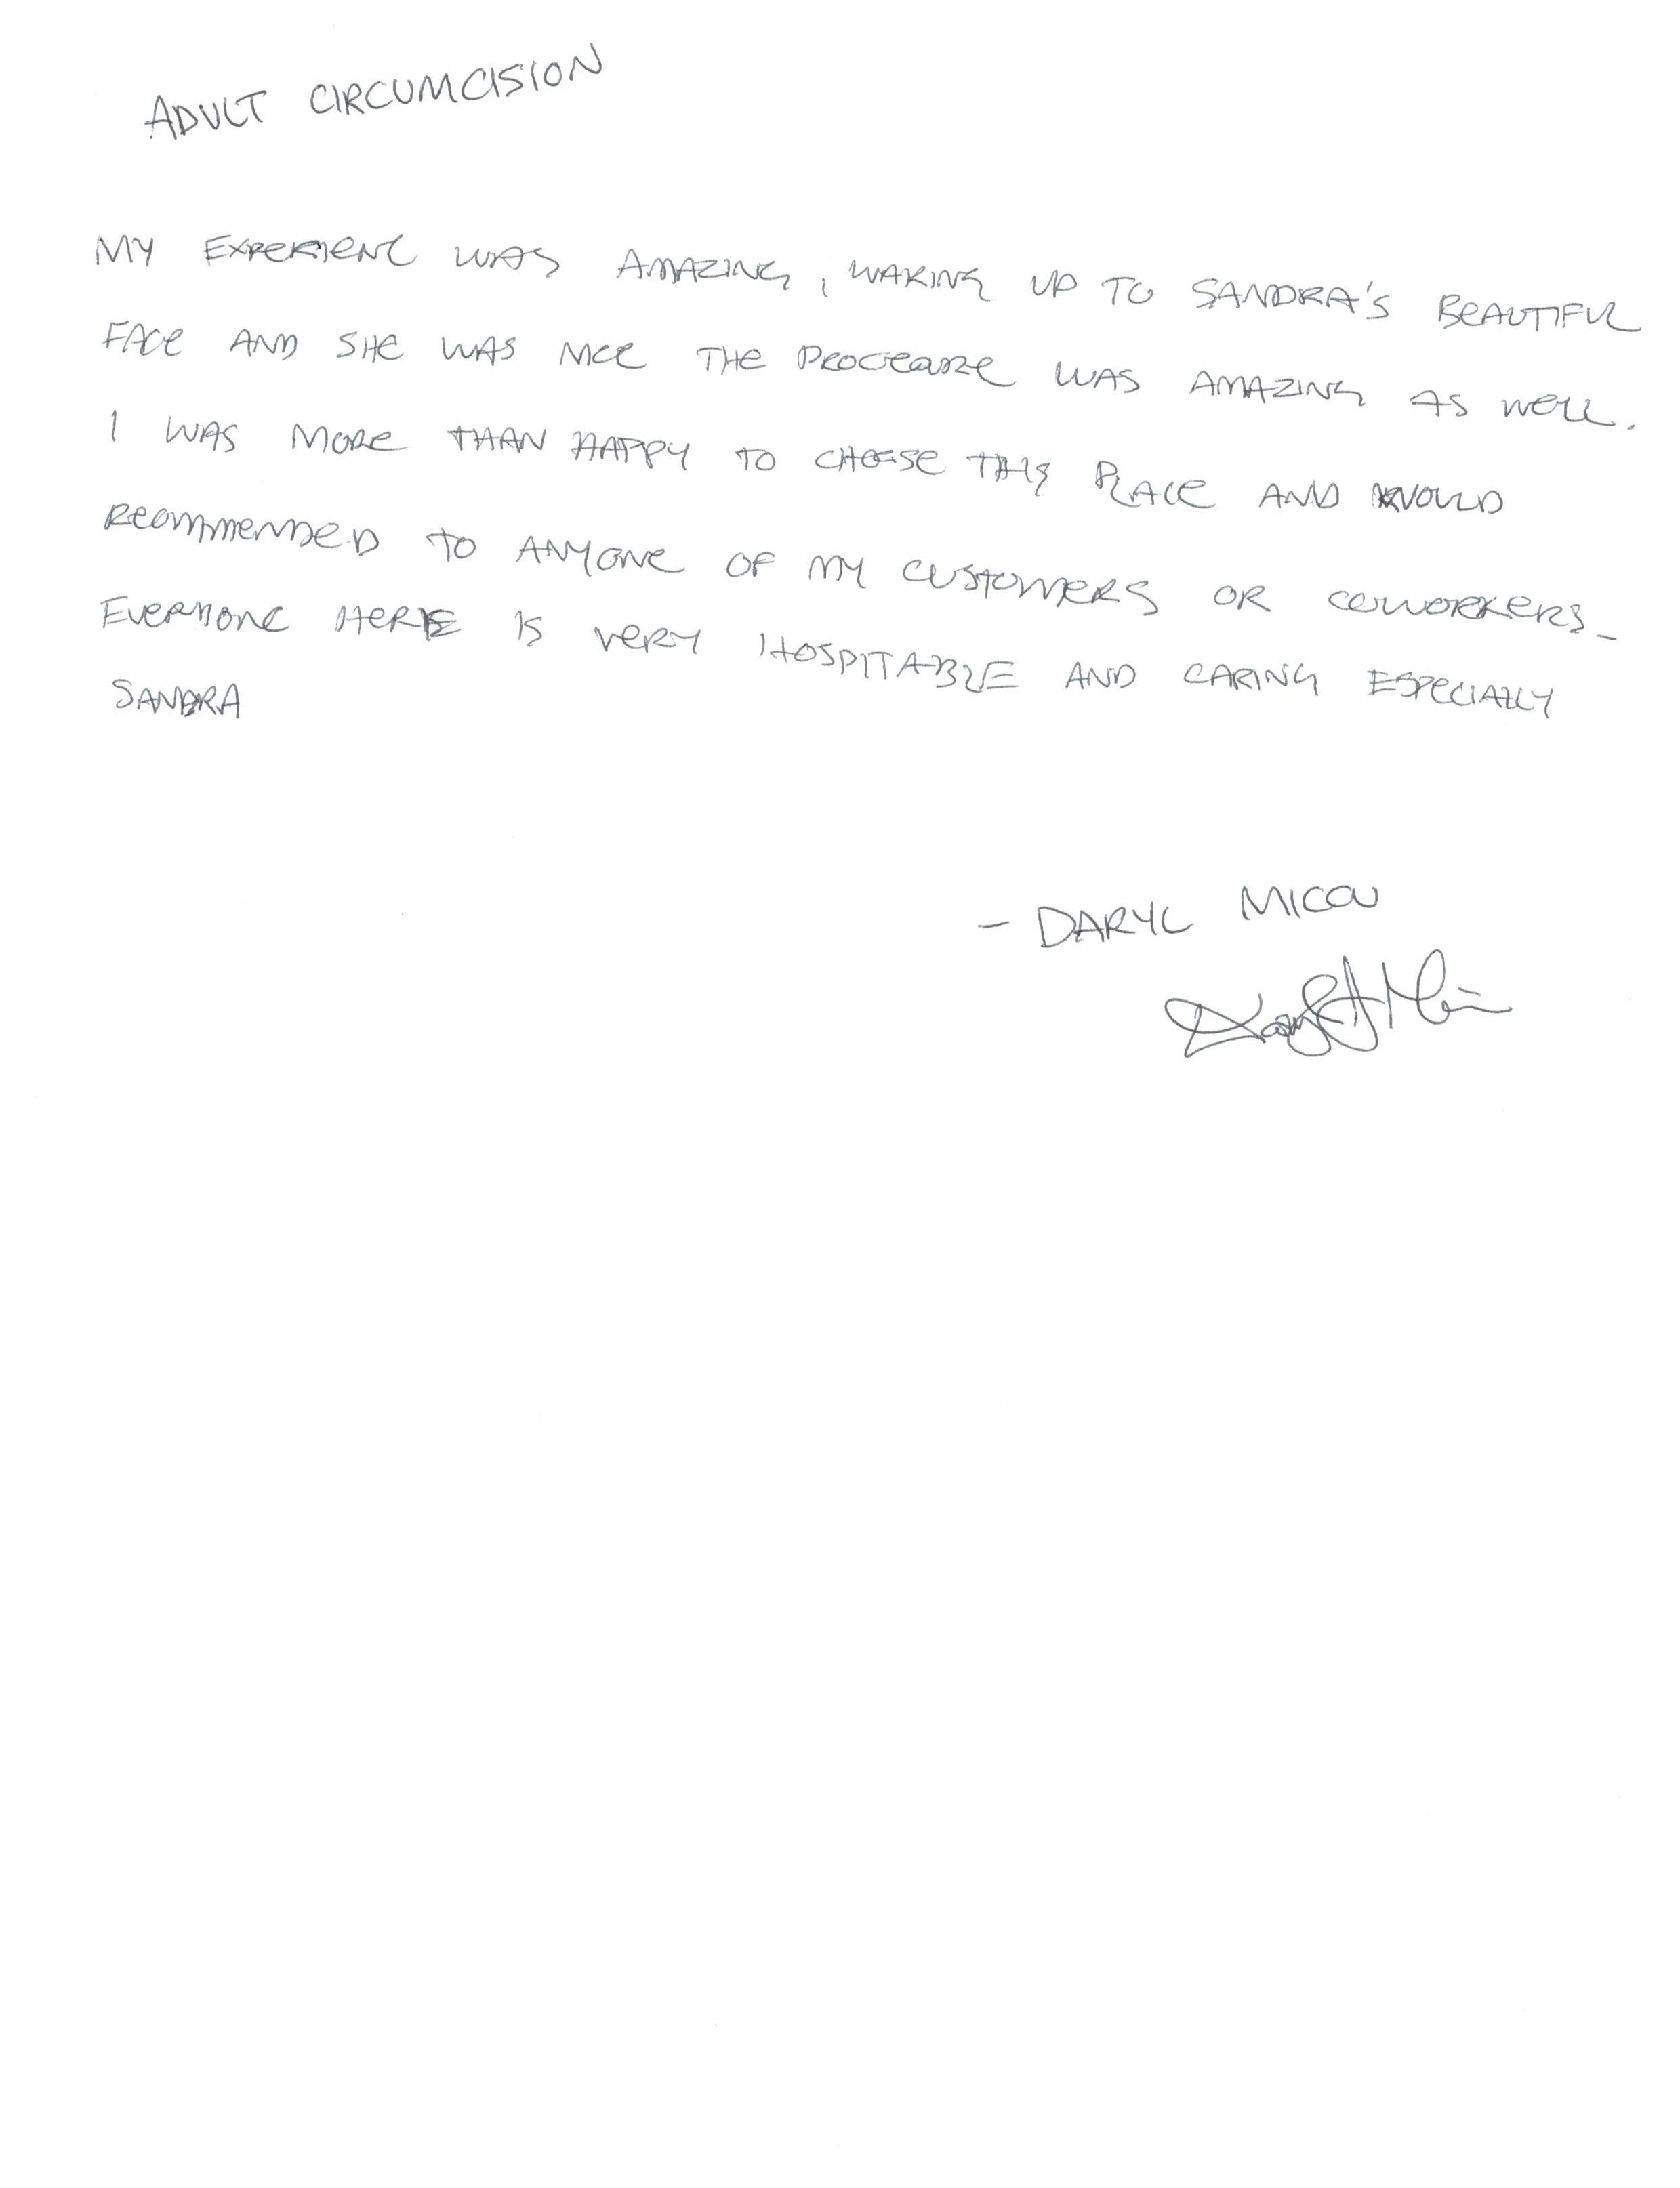 ADULT CIRCUMCISION
MY EXPERIENC WAS AMAZING, WAKING UP TO SANDRA'S BEAUTIFUL
FACE AND SHE WAS NICE THE PROCEDURE WAS AMAZING AS WELL.
I WAS MORE THAN HAPPY TO CHOOSE THIS PLACE AND WOULD
RECOMMENDED TO ANYONE OF MY CUSTOMERS OR COWORKERS.
EVERYONE HERE IS VERY HOSPITABLE AND CARING ESPECIALLY
SANDRA
- DARYL MICOU